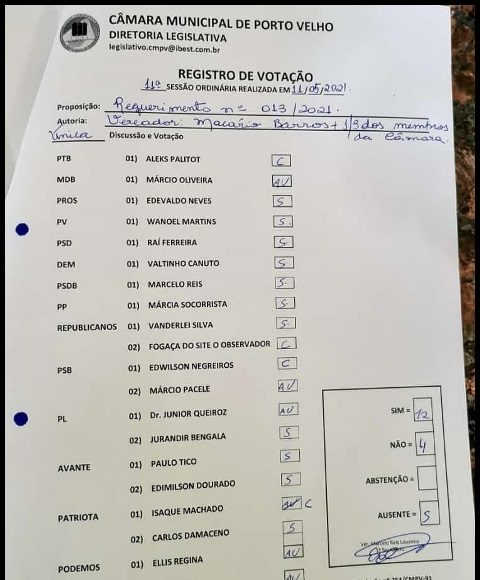 CÂMARA MUNICIPAL DE PORTO VELHO
DIRETORIA LEGISLATIVA
legislativo.cmpv@ibest.com.br
REGISTRO DE VOTAÇÃO
11ª SESSÃO ORDINÁRIA REALIZADA EM 11/05/2021.
Proposição: Requerimento nº 013/2021.
Autoria: Vereador: Macário Barros + 1/3 dos membros da Câmara.
Única Discussão e Votação
PTB 01) ALEKS PALITOT C
MDB 01) MÁRCIO OLIVEIRA AU
PROS 01) EDEVALDO NEVES S
PV 01) WANOEL MARTINS S
PSD 01) RAÍ FERREIRA S
DEM 01) VALTINHO CANUTO S
PSDB 01) MARCELO REIS S
PP 01) MÁRCIA SOCORRISTA S
REPUBLICANOS 01) VANDERLEI SILVA S
02) FOGAÇA DO SITE O OBSERVADOR C
PSB 01) EDWILSON NEGREIROS C
02) MÁRCIO PACELE AU
PL 01) Dr. JUNIOR QUEIROZ AU
02) JURANDIR BENGALA S
AVANTE 01) PAULO TICO S
02) EDIMILSON DOURADO S
PATRIOTA 01) ISAQUE MACHADO AU C
02) CARLOS DAMACENO S
PODEMOS 01) ELLIS REGINA AU
AU
SIM = 12
NÃO = 4
ABSTENÇÃO =
AUSENTE = 5